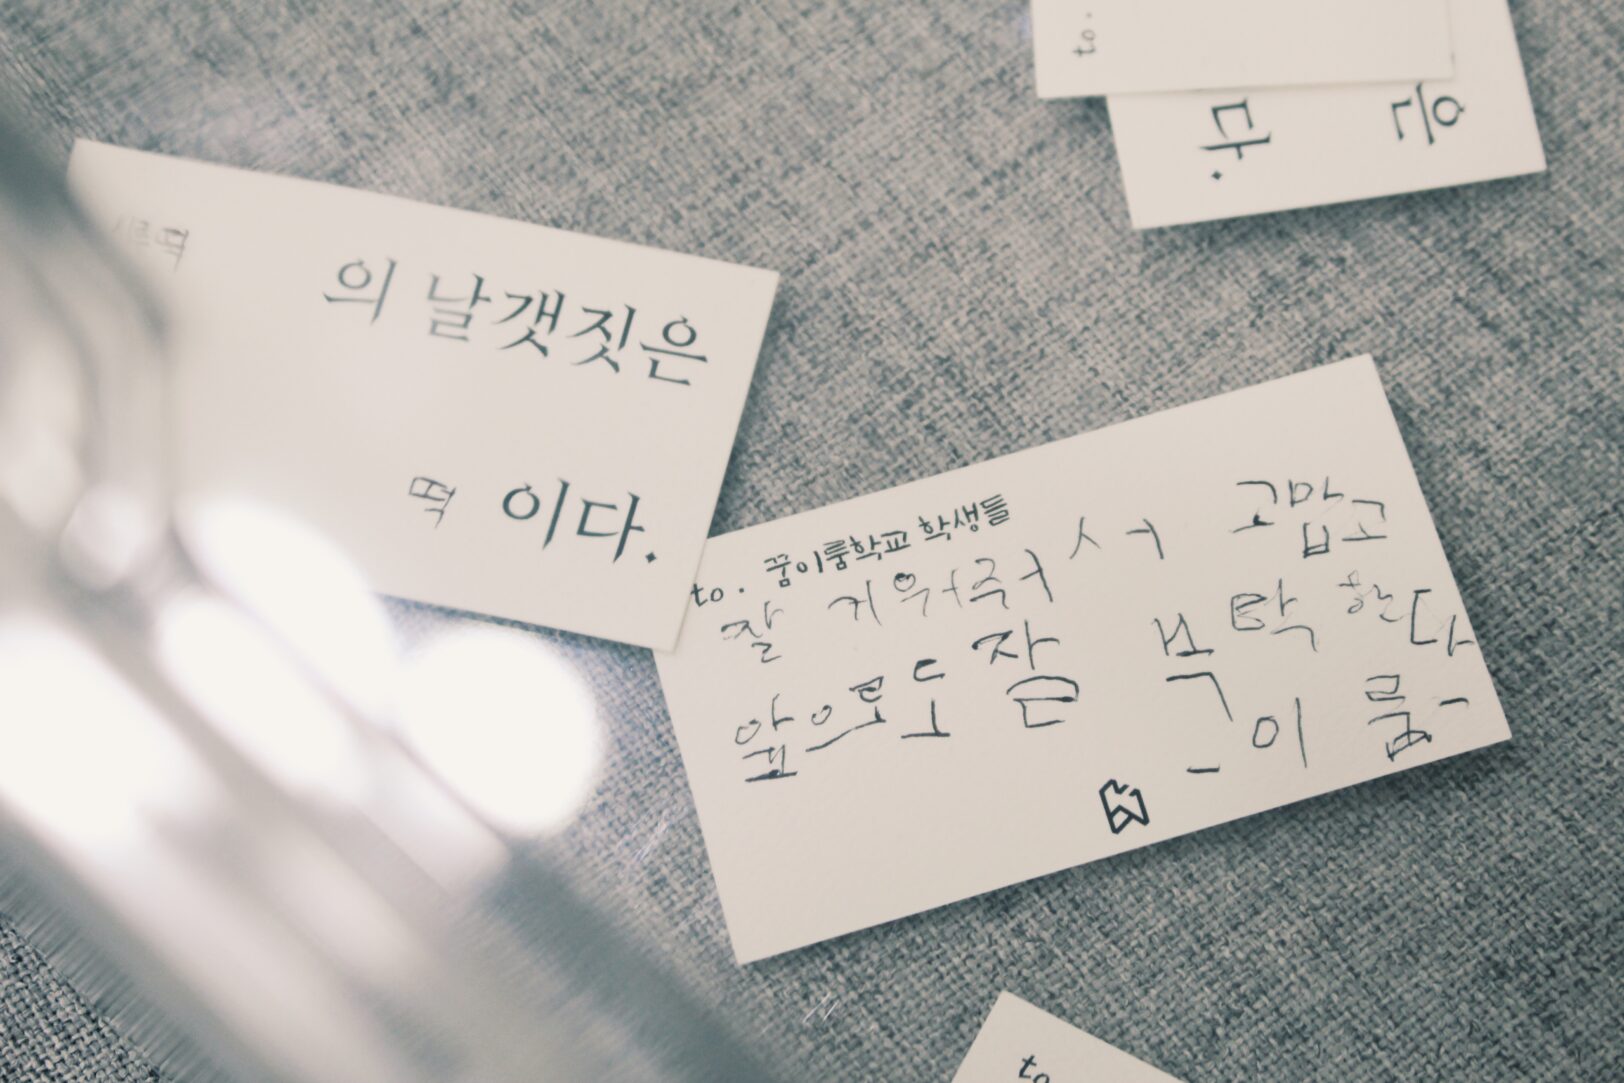 시루떡
의 날갯짓은
떡 이다.
to.
은
다.
to. 꿈이룸학교 학생들
잘 키워줘서 고맙고
앞으로도 잘 부탁한다
-이룸-
to